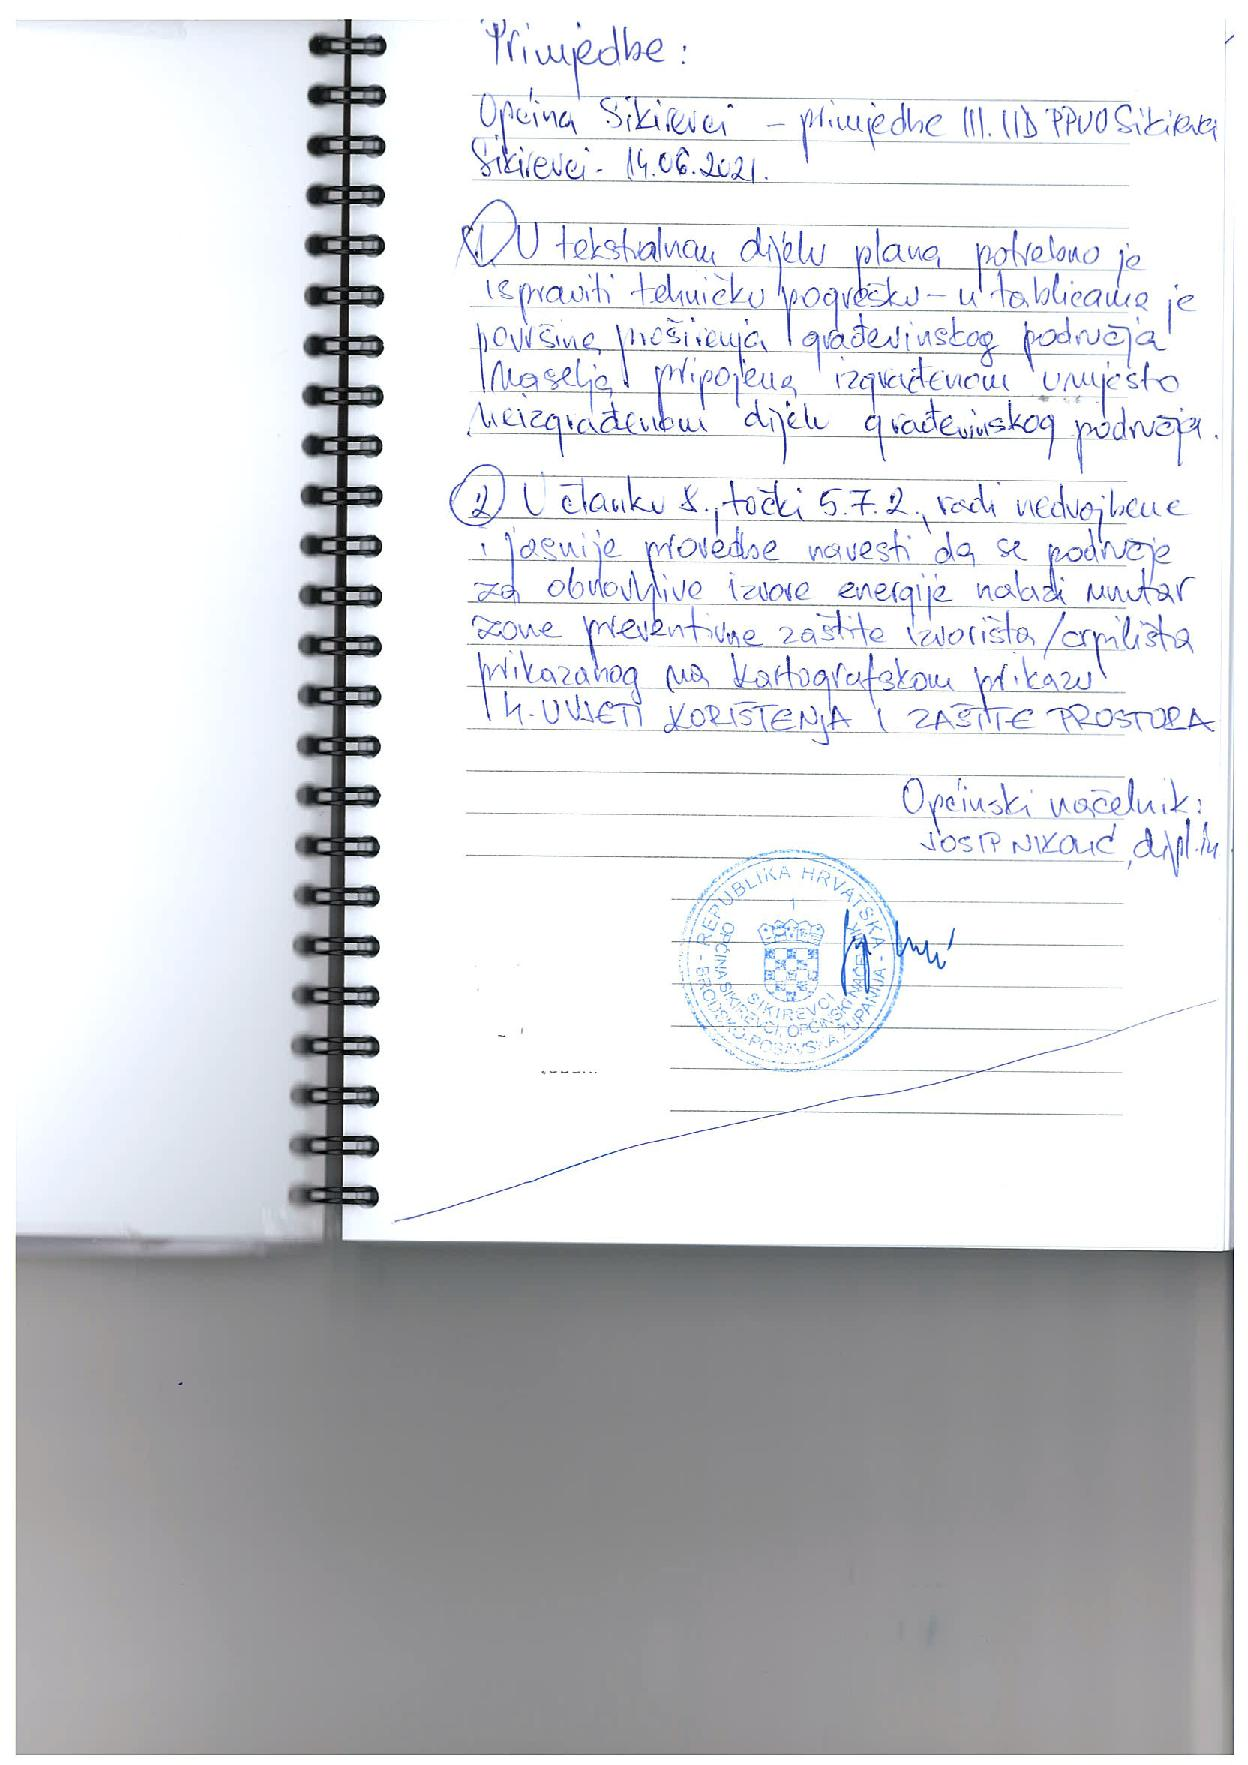 Primjedbe:
Općina Sikirevci - primjedbe III. IID PPUO Sikirevci
Sikirevci - 14.06.2021.
1) U tekstralnom dijelu plana potrebno je
ispraviti tehničku pogrešku - u tablicama je
površina proširenja građevinskog područja
naselja pripojena izgrađenom umjesto
neizgrađenom dijelu građevinskog područja.
2) U članku 8., točki 5.7.2., radi nedvojbene
i jasnije provedbe navesti da se područje
za obnovljive izvore energije nalazi unutar
zone preventivne zaštite izvorišta/crpilišta
prikazanog na kartografskom prikazu
4. UVJETI KORIŠTENJA I ZAŠTITE PROSTORA
Općinski načelnik:
JOSIP NIKOLIĆ, dipl.in
REPUBLIKA HRVATSKA
BRODSKO-POSAVSKA ŽUPANIJA
OPĆINA SIKIREVCI, OPĆINSKI NAČELNIK
1
SIKIREVCI